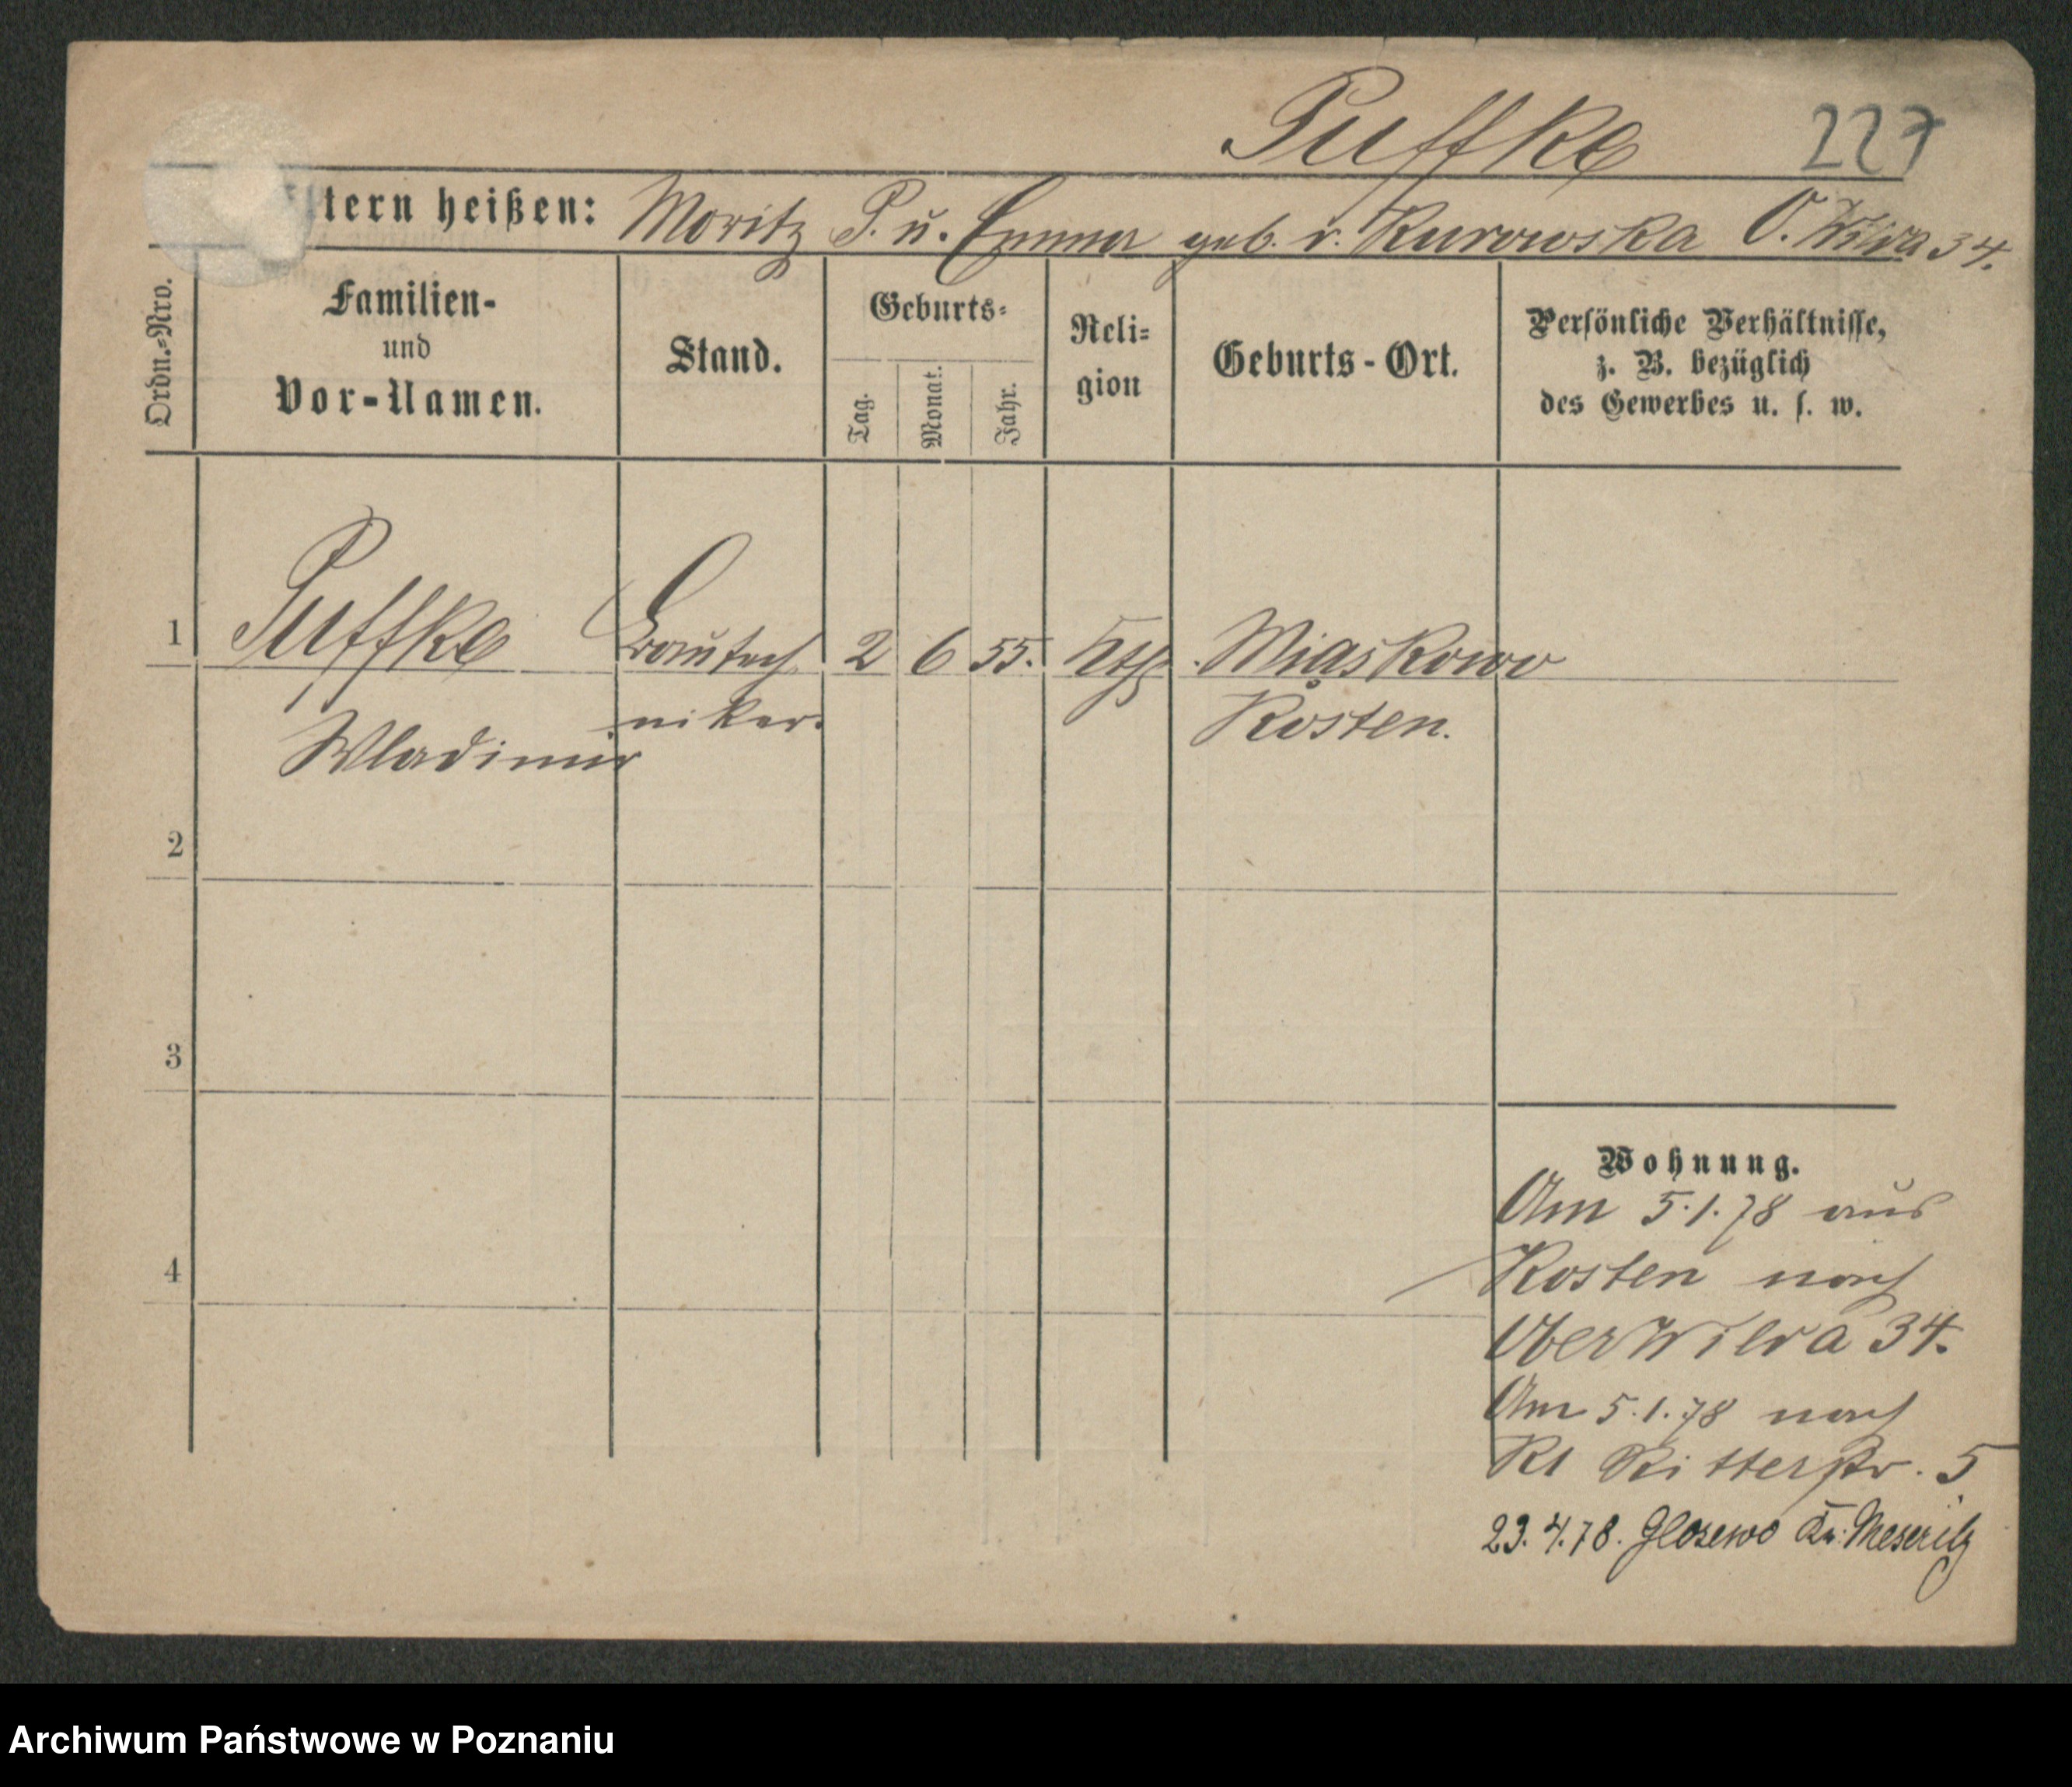 Puffke 227
ltern heißen: Moritz P. u. Emma geb. v. Kurowska O. Wilda 34.
Ordn.-Nro.
Familien-
und
Vor-Namen.
Stand.
Geburts-
Tag.
Monat.
Jahr.
Reli-
gion
Geburts-Ort.
Persönliche Verhältnisse,
z. B. bezüglich
des Gewerbes u. s. w.
1 Puffke 2 6 55. Kth. Miąskowo
Wladimir niker. Kosten.
2
3
4
Wohnung.
Am 5.1.78 aus
Kosten nach
Ober Wilda 34.
Am 5.1.78 nach
Kl Ritterstr. 5
23.4.78. Glosewo Kr: Meseritz
Archiwum Państwowe w Poznaniu